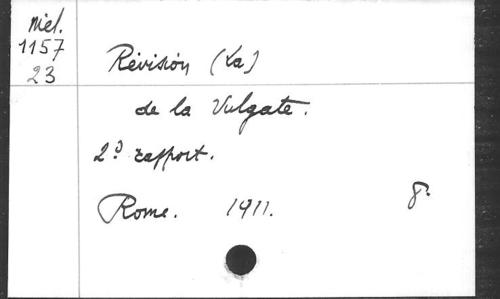 Miel.
1157
23
Révision (La)
de la Vulgate.
2d rapport.
Rome. 1911. 8.